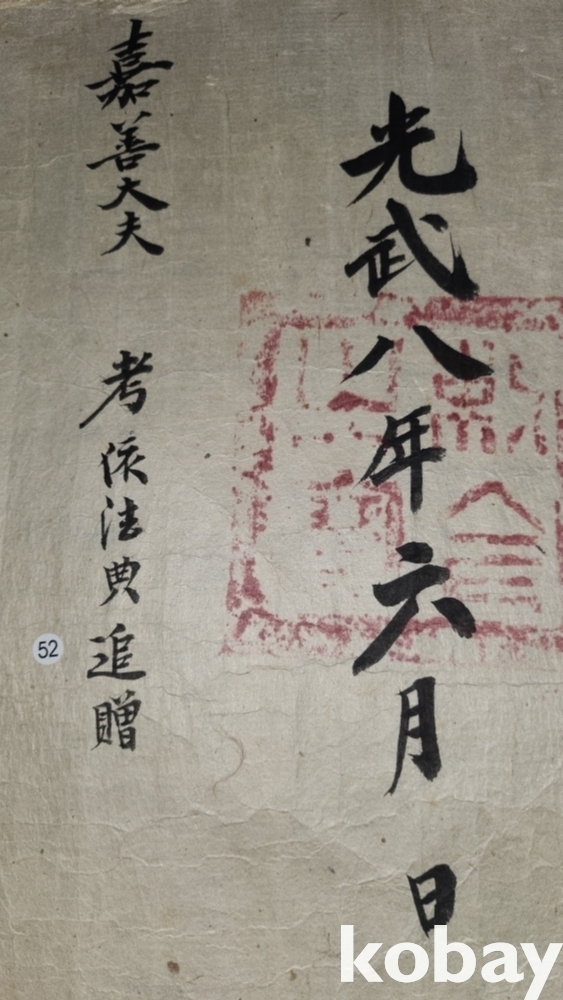 光武八年六月 日
嘉善大夫 考依法典追贈
52
kobay